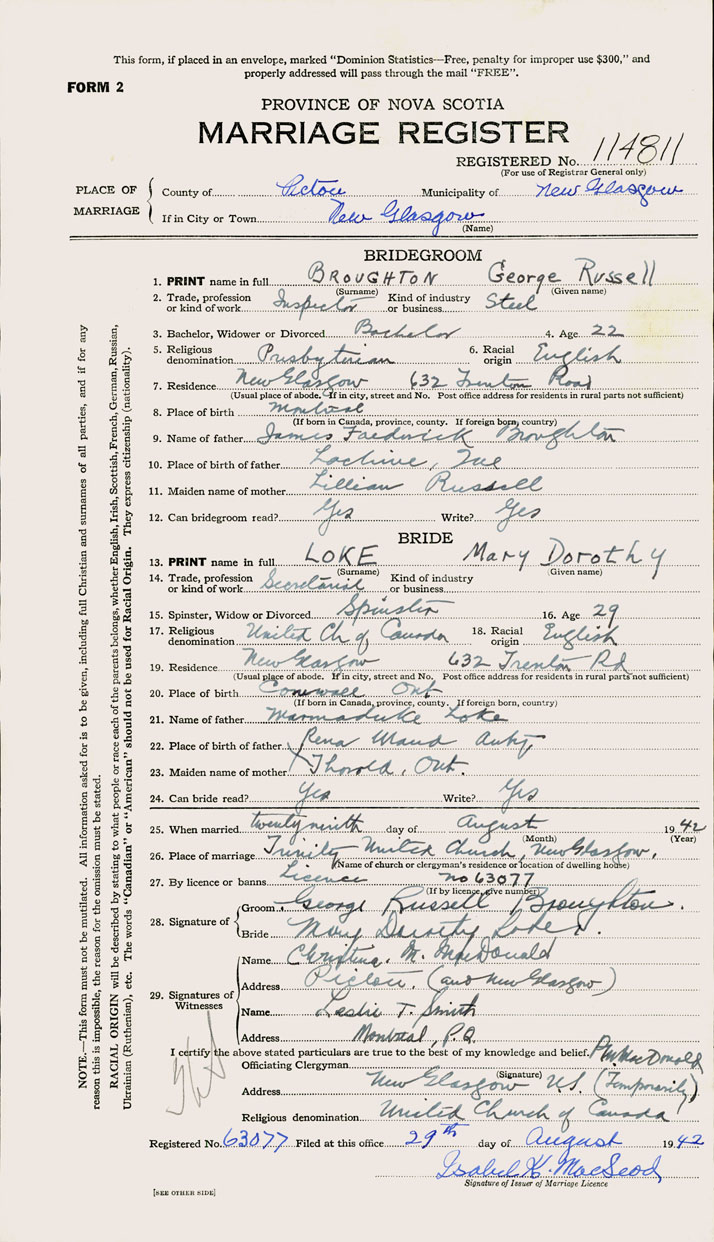 This form, if placed in an envelope, marked "Dominion Statistics—Free, penalty for improper use $300," and
properly addressed will pass through the mail "FREE".
FORM 2
PROVINCE OF NOVA SCOTIA
MARRIAGE REGISTER
REGISTERED No. 114811
(For use of Registrar General only)
PLACE OF MARRIAGE
County of Pictou Municipality of New Glasgow
If in City or Town New Glasgow
(Name)
BRIDEGROOM
1. PRINT name in full BROUGHTON George Russell
(Surname) (Given name)
2. Trade, profession or kind of work Inspector Kind of industry or business Steel
3. Bachelor, Widower or Divorced Bachelor 4. Age 22
5. Religious denomination Presbyterian 6. Racial origin English
7. Residence New Glasgow 632 Trenton Road
(Usual place of abode. If in city, street and No. Post office address for residents in rural parts not sufficient)
8. Place of birth Montreal
(If born in Canada, province, county. If foreign born, country)
9. Name of father James Frederick Broughton
10. Place of birth of father Lachine, Que
11. Maiden name of mother Lillian Russell
12. Can bridegroom read? Yes Write? Yes
BRIDE
13. PRINT name in full LOKE Mary Dorothy
(Surname) (Given name)
14. Trade, profession or kind of work Secretarial Kind of industry or business
15. Spinster, Widow or Divorced Spinster 16. Age 29
17. Religious denomination United Ch of Canada 18. Racial origin English
19. Residence New Glasgow 632 Trenton Rd
(Usual place of abode. If in city, street and No. Post office address for residents in rural parts not sufficient)
20. Place of birth Cornwall Ont
(If born in Canada, province, county. If foreign born, country)
21. Name of father Marmaduke Loke
22. Place of birth of father Rena Maud
23. Maiden name of mother Thorold, Ont.
24. Can bride read? Yes Write? Yes
25. When married twenty ninth day of August 1942
(Month) (Year)
26. Place of marriage Trinity United Church, New Glasgow.
(Name of church or clergyman's residence or location of dwelling house)
27. By licence or banns Licence no 63077
(If by licence, give number)
28. Signature of
Groom George Russell Broughton.
Bride Mary Dorothy Loke.
29. Signatures of Witnesses
Name Christina. M. MacDonald
Address Pictou, (and New Glasgow)
Name Leslie T. Smith
Address Montreal, P.Q.
I certify the above stated particulars are true to the best of my knowledge and belief.
Officiating Clergyman MacDonald
(Signature)
Address New Glasgow N.S. (Temporarily)
Religious denomination United Church of Canada
Registered No. 63077 Filed at this office 29th day of August 1942
Isabel K. MacLeod
Signature of Issuer of Marriage Licence
[SEE OTHER SIDE]
NOTE.—This form must not be mutilated. All information asked for is to be given, including full Christian and surnames of all parties, and if for any
reason this is impossible, the reason for the omission must be stated.
RACIAL ORIGIN will be described by stating to what people or race each of the parents belongs, whether English, Irish, Scottish, French, German, Russian,
Ukrainian (Ruthenian), etc. The words "Canadian" or "American" should not be used for Racial Origin. They express citizenship (nationality).